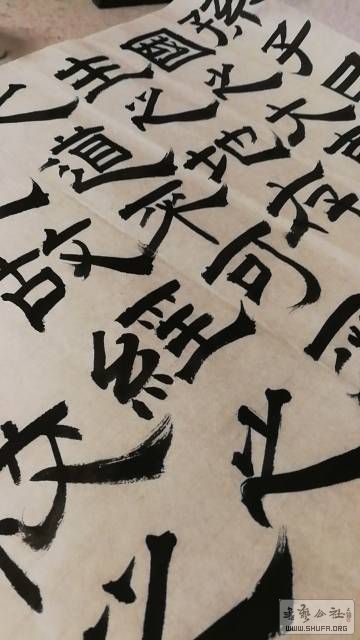 孫子曰
國之大事
生之地存
之道不可
故經之
校之
書法公社
WWW.SHUFA.ORG